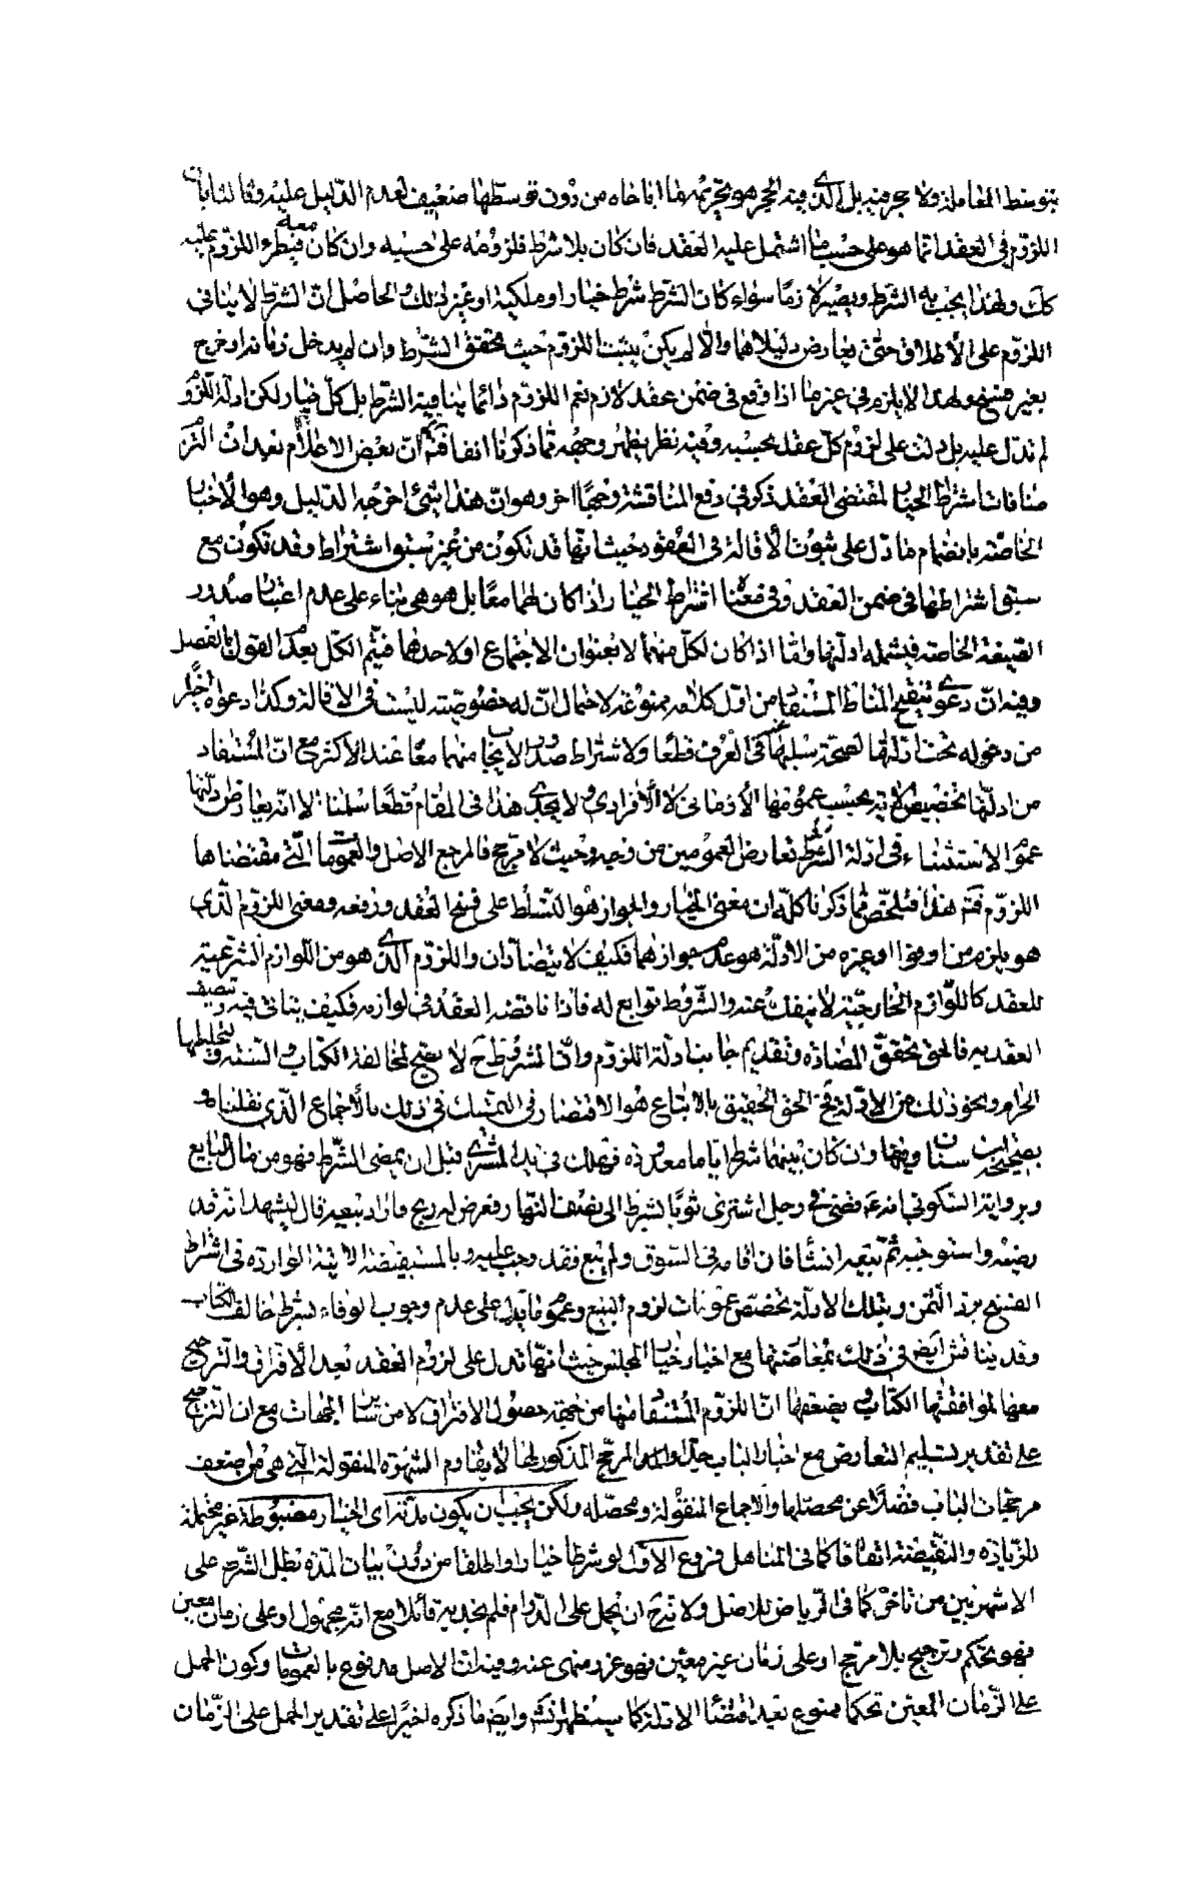 بتوسط المعاملة ولا حجر فيه بل الذي فيه الحجر هو تحريمه ما اباحاه من دون توسطها ضعيف لعدم الدليل عليه وثالثا بان
اللزوم في العقد انما هو على حسب ما اشتمل عليه العقد فان كان بلا شرط فلزومه على حسبه وان كان معه فيطرء اللزوم عليه
كك ولهذا يجب به الشرط ويصير لازما سواء كان الشرط شرط خيار او ملكية او غير ذلك والحاصل ان الشرط لا ينافي
اللزوم على الاطلاق حتى يعارض دليلاهما والا لم يكن يثبت اللزوم حيث تحقق الشرط وان لم يدخل زمانه او خرج
بغير فسخ ولهذا لا يلزم في غير ما اذا وقع في ضمن عقد لازم نعم اللزوم دائما ينافيه الشرط بل كل خيار لكن ادلة اللزوم
لم تدل عليه بل دلت على لزوم كل عقد بحسبه وفيه نظر يظهر وجهه مما ذكرنا انفا فتم ان بعض الاعلام بعد ان التزم
منافات اشتراط الخيار لمقتضى العقد ذكر في دفع المناقشة وجها اخر وهو ان هذا شيء اخرجه الدليل وهو الاخبار
الخاصة بانضمام ما دل على ثبوت الاقالة في العقود بحيث انها قد تكون من غير سبق اشتراط وقد تكون مع
سبق اشتراطها في ضمن العقد وفي معناه اشتراط الخيار اذا كان لهما معا بل هو هي بناء على عدم اعتبار صدور
الصيغة الخاصة فيشمله ادلتها واما اذا كان لكل منهما لا بعنوان الاجتماع او لاحدهما فيتم الكل بعدم القول بالفصل
وفيه ان دعوى تنقيح المناط المستفاد من اول كلامه ممنوعة لاحتمال ان له خصوصية ليست في الاقالة وكذا دعواه اخيرا
من دخوله تحت ادلتها لصحة سلبها عنه في العرف قطعا ولاشتراط صدور الايجاب منهما معا عند الاكثر مع ان المستفاد
من ادلتها تخصيص الاية بحسب عمومها الازماني لا الافرادي ولا يجدي هذا في المقام قطعا سلمنا الا انه يعارض دلتها
عموم الاستثناء في ادلة الشرط تعارض العمومين من وجه وحيث لا مرجح فالمرجع الاصل والعمومات التي مقتضاها
اللزوم فتم هذا فتلخص مما ذكرنا كله ان معنى الخيار والجواز هو التسلط على فسخ العقد ورفعه ومعنى اللزوم الذي
هو يلزم من اوفوا او غيره من الادلة هو عدم جوازهما فكيف لا يتضادان واللزوم الذي هو من اللوازم الشرعية
للعقد كاللوازم الخارجية لا ينفك عنه والشروط توابع له فاذا ناقضه العقد في لوازمه فكيف يناتى فيه وتصيف
العقد به فالحق تحقق المضادة وتقديم جانب ادلة اللزوم وان المشروط ح لا يصح لمخالفة الكتاب والسنة ولتحليلها
الحرام ونحو ذلك عن الادلة فح الحق الحقيق بالاتباع هو الاقتصار في التمسك في ذلك بالاجماع الذي نقلناه و
بصحيحة ابن سنان وفيها وان كان بينهما شرط اياما معدودة فهلك في يد المشتري قبل ان يمضي الشرط فهو من مال البايع
وبرواية السكوني انه ع قضى في رجل اشترى ثوبا بشرط الى نصف النهار فعرض له ربح فاراد بيعه قال ليشهد انه قد
رضيه واستوجبه ثم ليبعه انشاء فان اقامه في السوق ولم يبع فقد وجب عليه وبالمستفيضة الاتية الواردة في اشتراط
الفسخ برد الثمن وبتلك الادلة تخصص عمومات لزوم البيع وعموم ما يدل على عدم وجوب الوفاء بشرط خالف الكتاب
وقد يناقش ايض في ذلك بمعارضتها مع اخبار خيار المجلس حيث انها تدل على لزوم العقد بعد الافتراق والترجيح
معها لموافقتها الكتاب ويضعفها ان اللزوم المستفاد منها من جهة حصول الافتراق لا من سائر الجهات مع ان الترجيح
على تقدير تسليم التعارض مع اخبار الباب جدا والمرجح المذكور لها لا يقاوم الشهرة المنقولة التي هي من اضعف
مرجحات الباب فضلا عن محصلها والاجماع المنقولة ومحصله ولكن يجب ان يكون مدته اى الخيار مضبوطة غير محتملة
للزيادة والنقيصة اتفاقا كما في المناهل فروع الاول لو شرطا خيارا واطلقا من دون بيان المدة بطل الشرط على
الاشهر بين من تاخر كما في الرياض للاصل ولانه ح ان يحمل على الدوام فلم نجد به قائلا مع انه مجهول او على زمان معين
فهو تحكم وترجيح بلا مرجح او على زمان غير معين فهو غرر منهى عنه وفيه ان الاصل مدفوع بالعمومات وكون الحمل
على الزمان المعين تحكما ممنوع بعد اقتضاء الادلة كما سيظهر انش وايض ما ذكره اخيرا على تقدير الحمل على الزمان